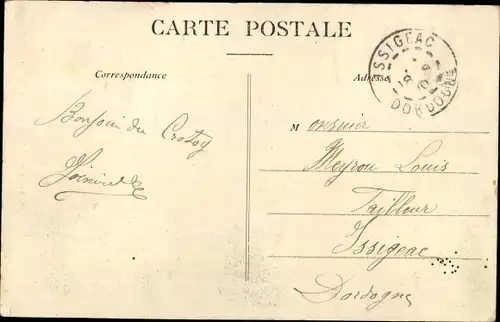 CARTE POSTALE
ISSIGEAC
DORDOGNE
Correspondance
Adresse
Bonjour du Crotoy
Monsieur
Meyrou Louis
Tailleur
Issigeac
Dordogne